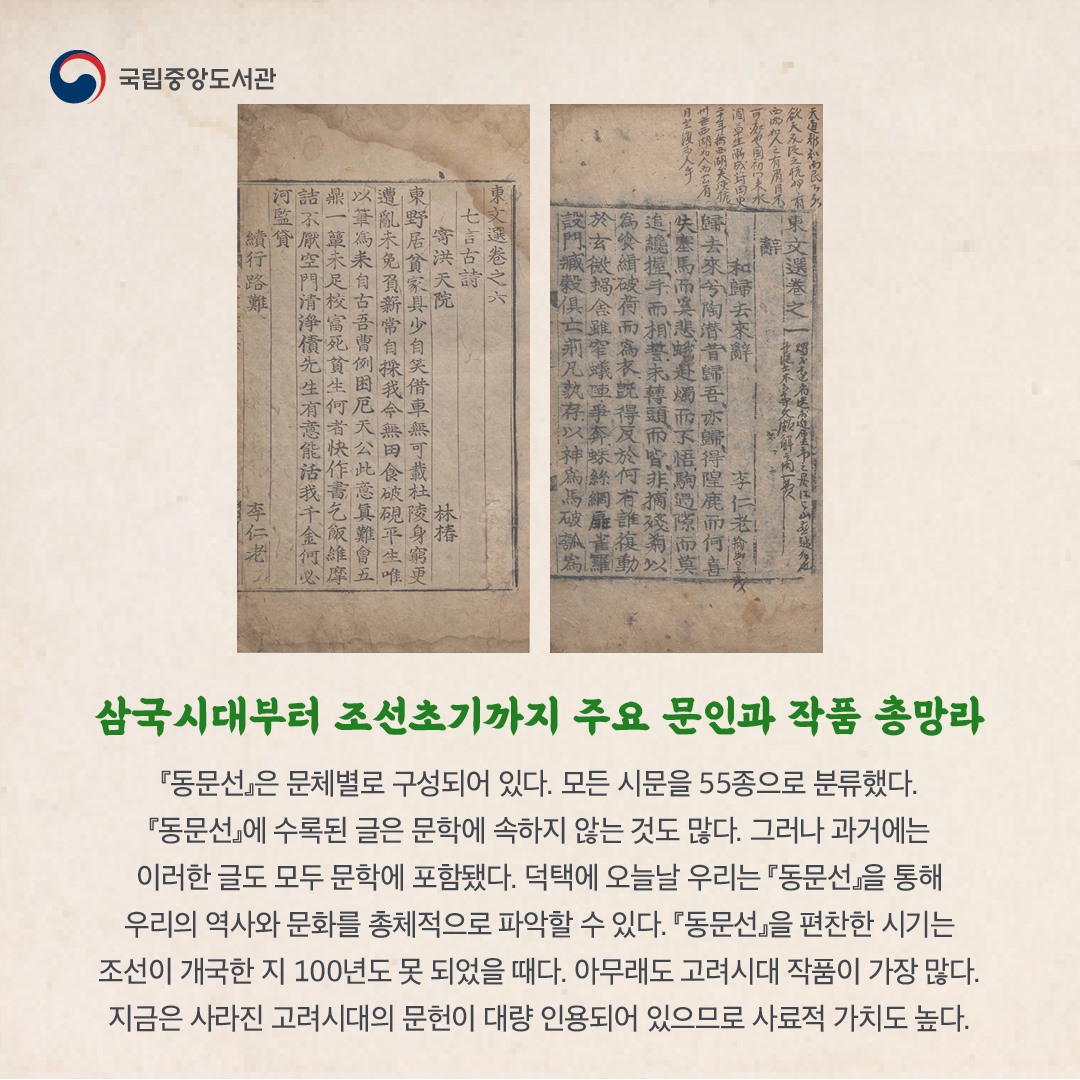 국립중앙도서관
東文選卷之六
七言古詩
寄洪天院 林椿
東野居貧家具少自笑借車無可載杜陵身窮更
遭亂未免負新常自採我今無田食破硯平生唯
以筆爲耒自古吾曹例困厄天公此意眞難會五
鼎一簞未足校富死貧生何者快作書乞飯維摩
詰不厭空門清淨債先生有意能活我千金何必
河監貸
續行路難 李仁老
東文選卷之一
辭
和歸去來辭 李仁老
歸去來兮陶潛昔歸吾亦歸得隍鹿而何喜
失塞馬而奚悲蛾赴燭而不悟駒過隙而莫
追纔握手而相誓未轉頭而皆非摘殘菊以
爲食緝破荷而爲衣旣得反於何有誰復動
於玄微蝸舍雖窄蟻陣爭奔蛛絲網扉雀羅
設門臧穀俱亡荊凡孰存以神爲馬破瓠爲
삼국시대부터 조선초기까지 주요 문인과 작품 총망라
『동문선』은 문체별로 구성되어 있다. 모든 시문을 55종으로 분류했다.
『동문선』에 수록된 글은 문학에 속하지 않는 것도 많다. 그러나 과거에는
이러한 글도 모두 문학에 포함됐다. 덕택에 오늘날 우리는 『동문선』을 통해
우리의 역사와 문화를 총체적으로 파악할 수 있다. 『동문선』을 편찬한 시기는
조선이 개국한 지 100년도 못 되었을 때다. 아무래도 고려시대 작품이 가장 많다.
지금은 사라진 고려시대의 문헌이 대량 인용되어 있으므로 사료적 가치도 높다.